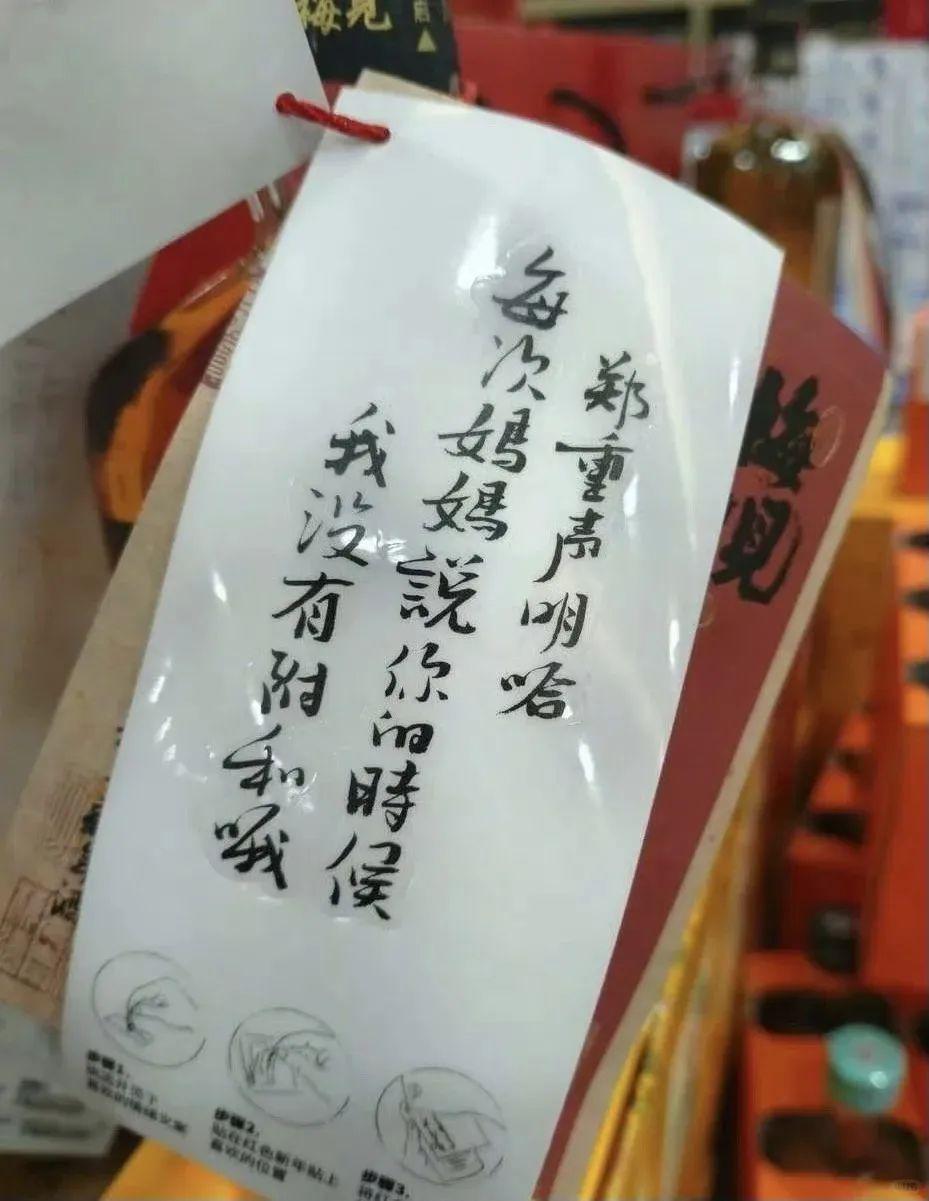 梅見
郑重声明哈
每次媽媽説你的時候
我没有附和哦
梅見
步骤1.
步骤2.
贴在红色新年贴上
喜欢的位置
步骤3.